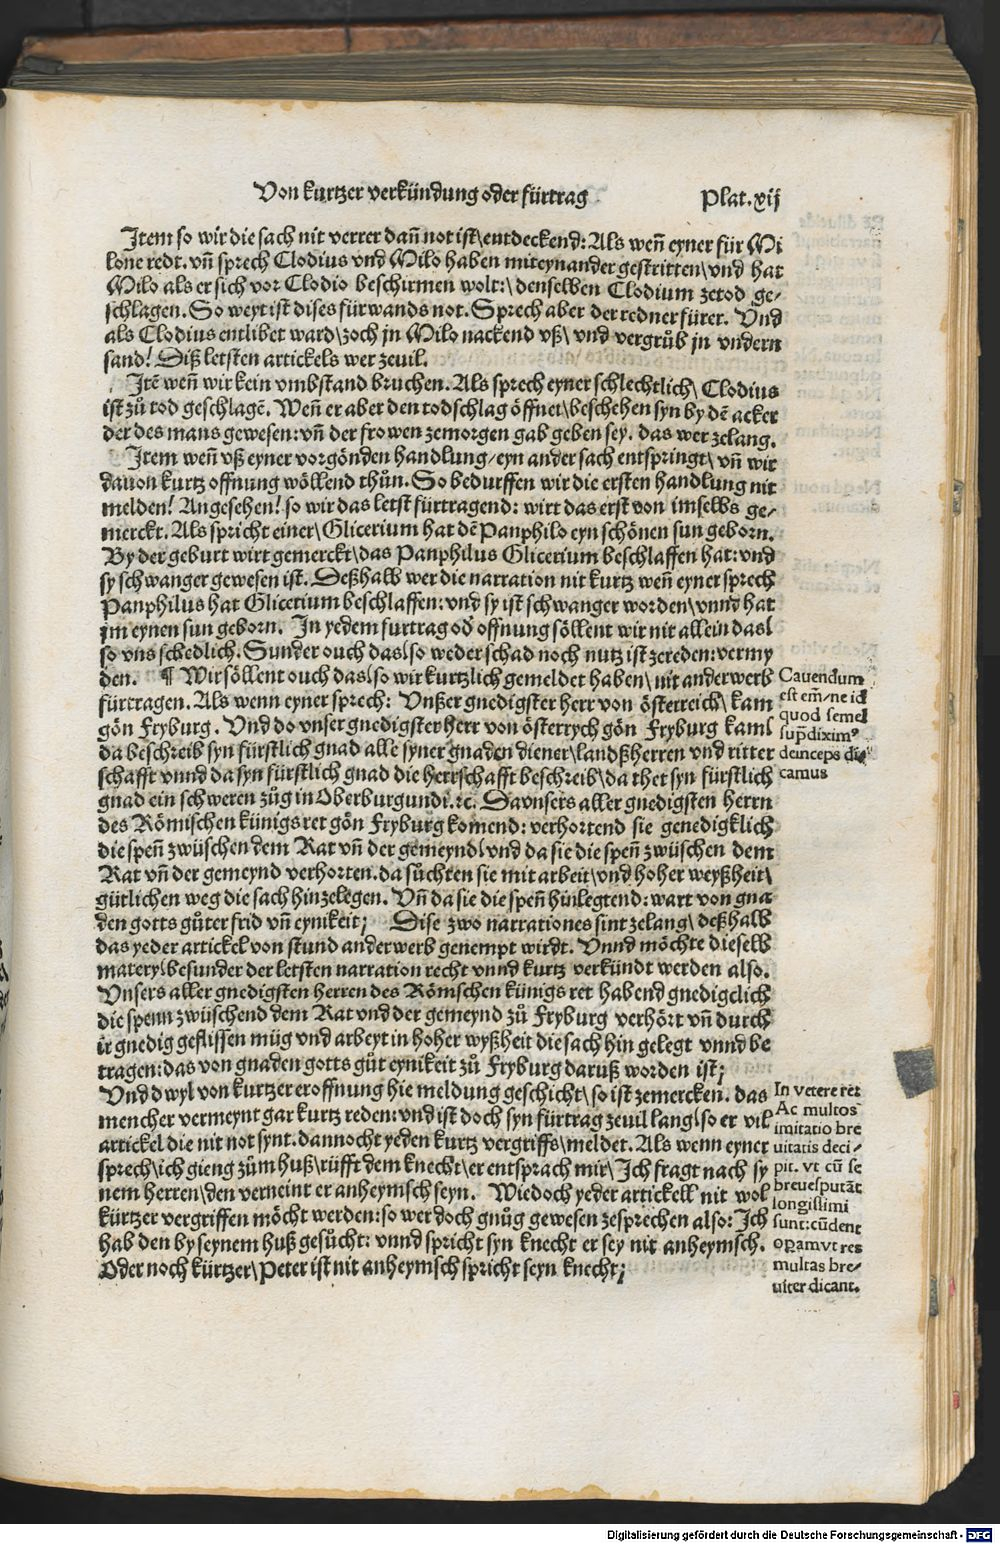 Von kurtzer verkündung oder fürtrag
Plat. xij
Item so wir die sach nit verrer dañ not ist\ entdeckend: Als weñ eyner für Mi
lone redt. vñ sprech Clodius vnd Milo haben miteynander gestritten\ vnd hat
Milo als er sich vor Clodio beschirmen wolt:\ denselben Clodium zetod ge⸗
schlagen. So weyt ist dises fürwands not. Sprech aber der redner fürer. Vnd
als Clodius entlibet ward\ zoch jn Milo nackend vß\ vnd vergrůb jn vndern
sand! Diß letsten artickels wer zeuil.
Itē weñ wir kein vmbstand bruchen. Als sprech eyner schlechtlich\ Clodius
ist zů tod geschlagē. Weñ er aber den todschlag öffnet\ beschehen syn by dē acker
der des mans gewesen: vñ der frowen zemorgen gab geben sey. das wer zelang.
Item weñ vß eyner vorgönden handlung/ eyn ander sach entspringt\ vñ wir
dauon kurtz offnung wöllend thůn. So bedurffen wir die ersten handlung nit
melden! Angesehen! so wir das letst fürtragend: wirt das erst von imselbs ge⸗
merckt. Als spricht einer\ Glicerium hat dē Panphilo eyn schönen sun geborn.
By der geburt wirt gemerckt\ das Panphilus Glicerium beschlaffen hat: vnd
sy schwanger gewesen ist. Deßhalb wer die narration nit kurtz weñ eyner sprech
Panphilus hat Glicerium beschlaffen: vnd sy ist schwanger worden\ vnnd hat
im eynen sun geborn. In yedem furtrag od̓ offnung söllent wir nit allein das\
so vns schedlich. Sunder ouch das\ so weder schad noch nutz ist zereden: vermy
den. ¶ Wir söllent ouch das\ so wir kurtzlich gemeldet haben\ nit anderwerb
fürtragen. Als wenn eyner sprech: Vnßer gnedigster herr von österreich\ kam
gön Fryburg. Vnd do vnser gnedigster herr von österrych gön Fryburg kam\
da beschreib syn fürstlich gnad alle syner gnaden diener\ landßherren vnd ritter
schafft vnnd da syn fürstlich gnad die herrschafft beschreib\ da thet syn fürstlich
gnad ein schweren zůg in Oberburgundi. ꝛc. Da vnsers aller gnedigsten herrn
des Römischen künigs ret gön Fryburg komend: verhortend sie genedigklich
die speñ zwüschen dem Rat vñ der gemeynd\ vnd da sie die speñ zwüschen dem
Rat vñ der gemeynd verhorten. da sůchten sie mit arbeit\ vnd hoher weyßheit\
gütlichen weg die sach hinzelegen. Vñ da sie die speñ hinlegtend: wart von gna
den gotts gůter frid vñ eynikeit; Dise zwo narrationes sint zelang\ deßhalb
das yeder artickel von stund anderwerb genempt wirdt. Vnnd möchte dieselb
matery\ besunder der letsten narration recht vnnd kurtz verkündt werden also.
Vnsers aller gnedigsten herren des Römschen künigs ret habend gnedigclich
die spenn zwüschend dem Rat vnd der gemeynd zů Fryburg verhört vñ durch
ir gnedig geflissen müg vnd arbeyt in hoher wyßheit die sach hin gelegt vnnd be
tragen: das von gnaden gotts gůt eynikeit zů Fryburg daruß worden ist;
Vnd dwyl von kurtzer eroffnung hie meldung geschicht\ so ist zemercken. das
mencher vermeynt gar kurtz reden: vnd ist doch syn fürtrag zeuil lang\ so er vil
artickel die nit not synt. dannocht yeden kurtz vergriffs\ meldet. Als wenn eyner
sprech\ ich gieng zům huß\ rüfft dem knecht\ er entsprach mir\ Ich fragt nach sy
nem herren\ den verneint er anheymsch seyn. Wiedoch yeder artickell nit wol
kürtzer vergriffen möcht werden: so wer doch gnůg gewesen zesprechen also: Ich
hab den by seynem huß gesůcht: vnnd spricht syn knecht er sey nit anheymsch.
Oder noch kürtzer\ Peter ist nit anheymsch spricht seyn knecht;
Cauendum
est em̄/ ne id
quod semel
sup̄diximꝰ
deinceps di
camus
In vetere ret
Ac multos
imitatio bre
uitatis deci⸗
pit. vt cū se
breues putāt
longissimi
sunt: cū dent
operam vt res
multas bre⸗
uiter dicant.
Digitalisierung gefördert durch die Deutsche Forschungsgemeinschaft - DFG